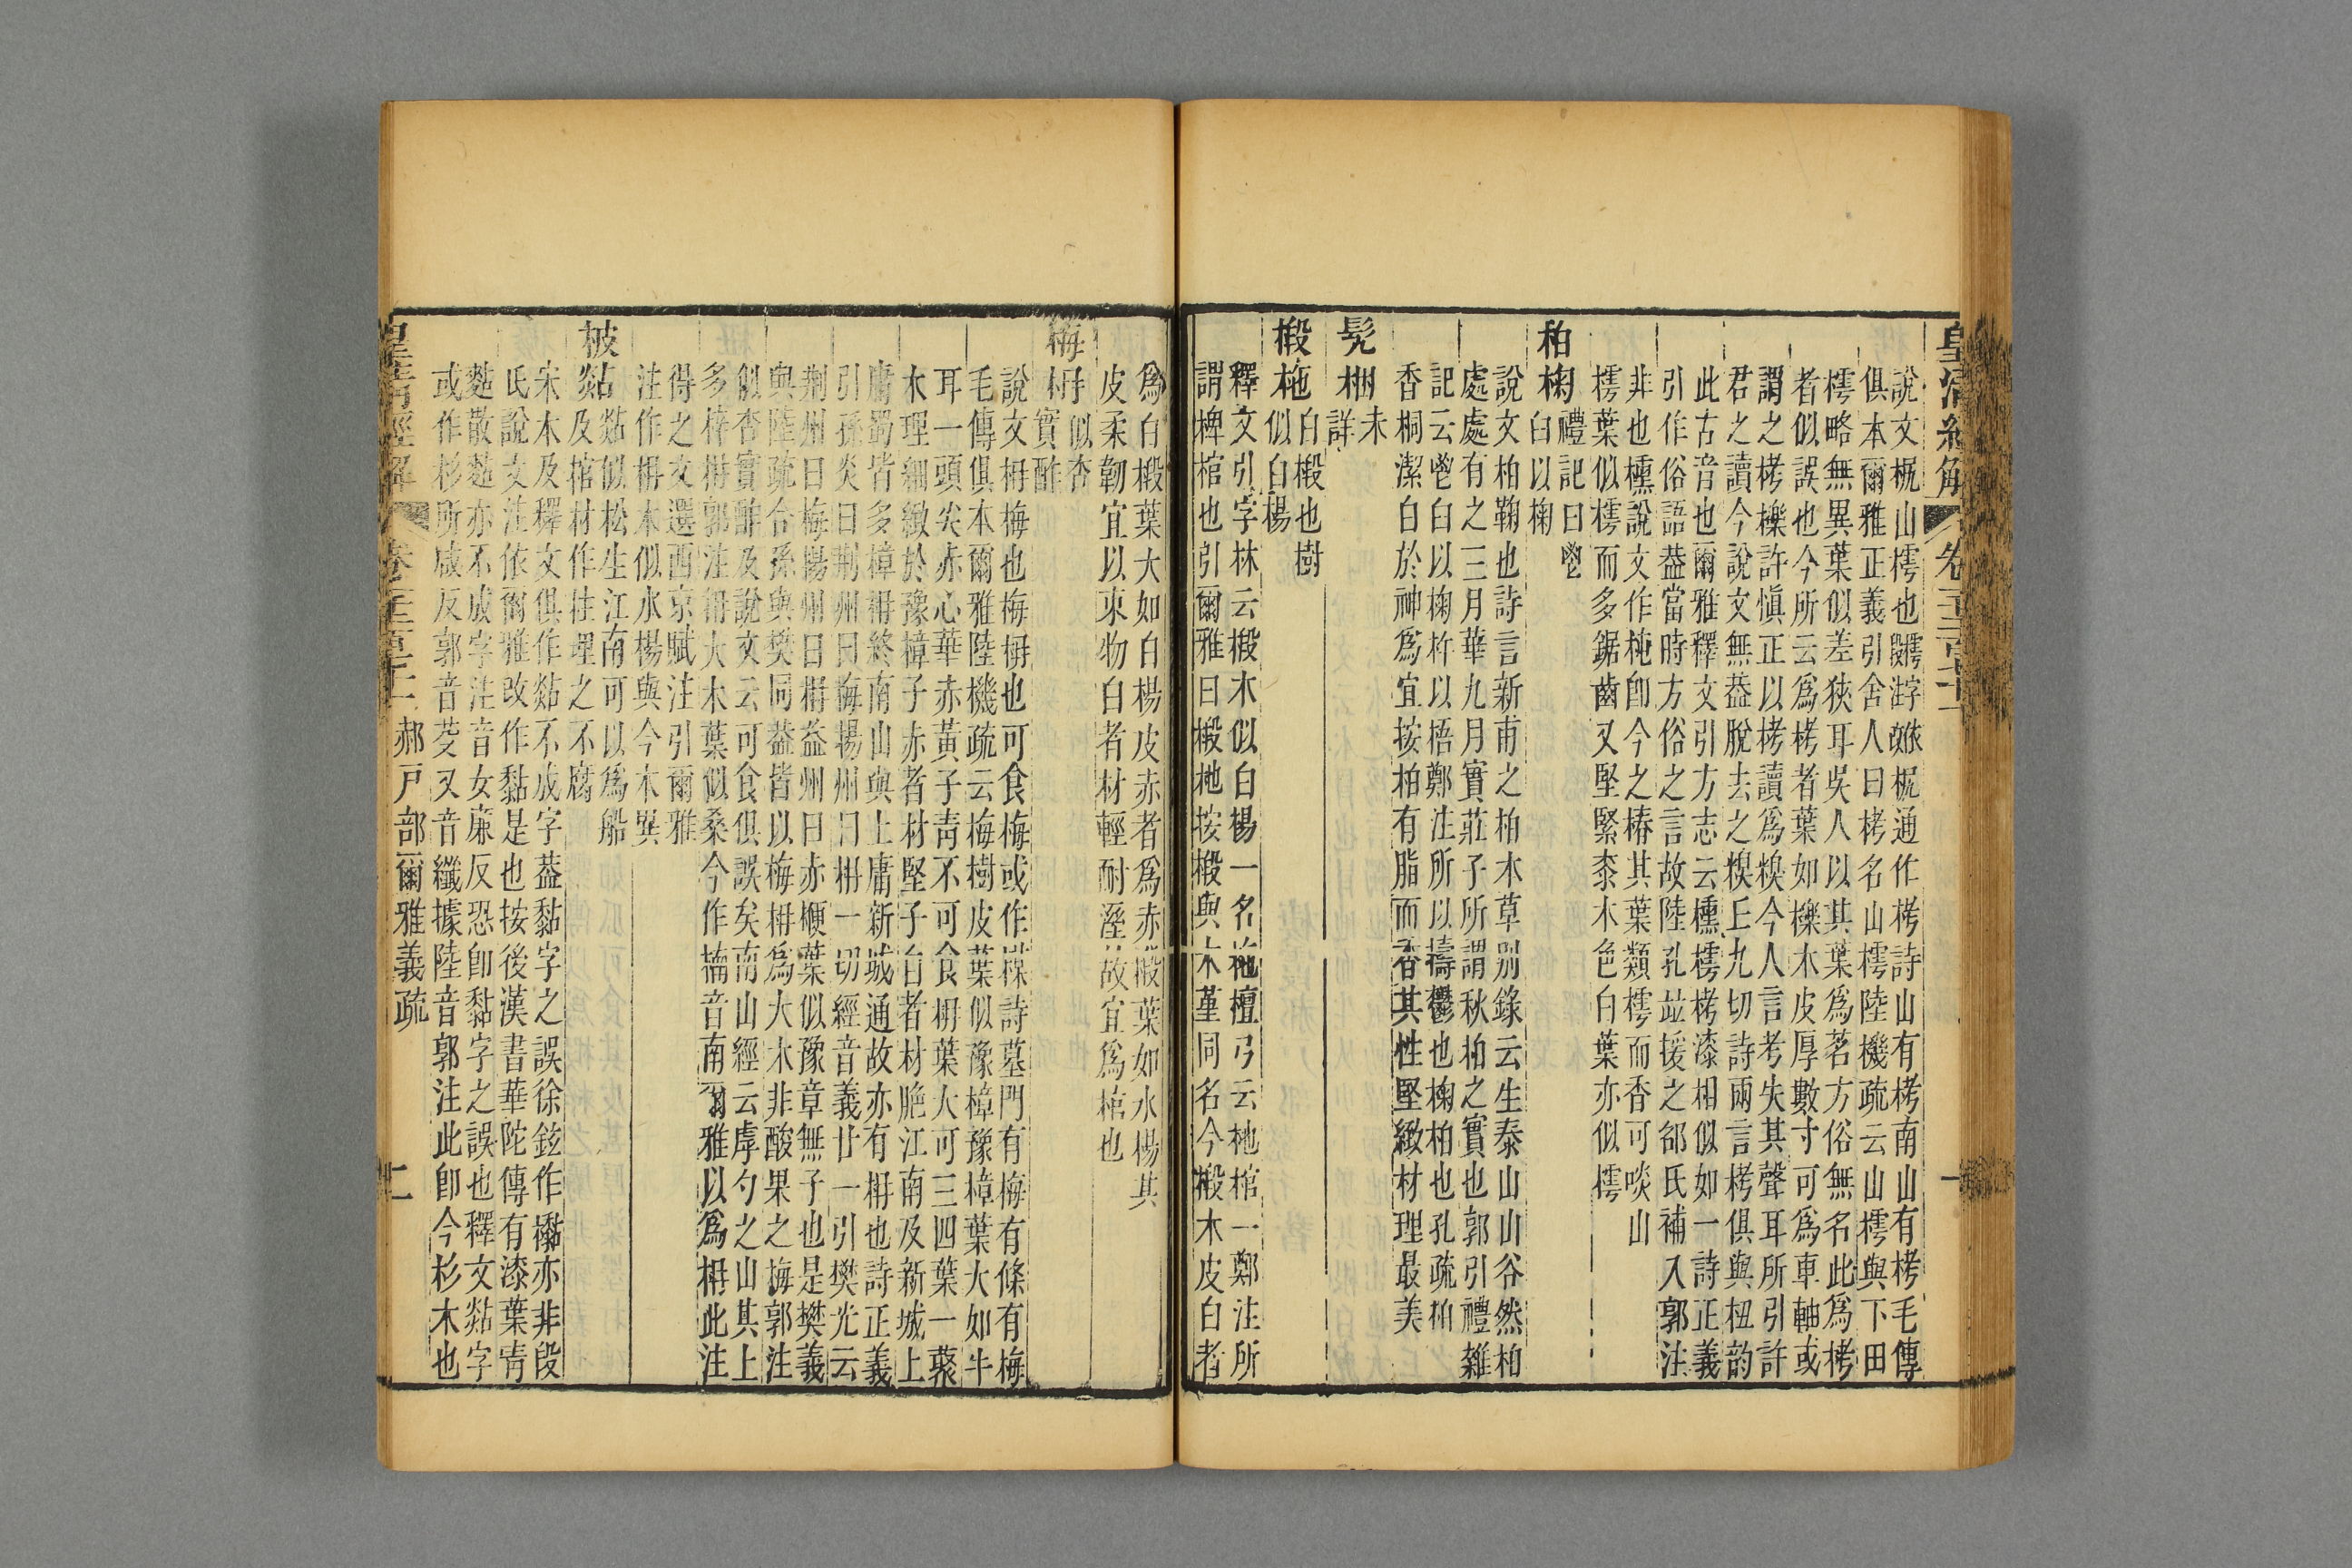 皇清經解
說文梔山樗也段注改依梔通作栲詩山有栲南山有栲毛傳
俱本爾雅正義引舍人曰栲名山樗陸機疏云山樗與下田
樗略無異葉似差狹耳吳人以其葉為茗方俗無名此為栲
者似誤也今所云為栲者葉如櫟木皮厚數寸可為車軸或
謂之栲櫟許慎正以栲讀為糗今人言考失其聲耳所引許
君之讀今說文無葢脫去之糗丘九切詩兩言栲俱與杻韵
此古音也爾雅釋文引方志云櫄樗栲漆相似如一詩正義
引作俗語葢當時方俗之言故陸孔竝援之邵氏補入郭注
非也櫄說文作杶卽今之椿其葉類樗而香可啖山
樗葉似樗而多鋸齒又堅緊柰木色白葉亦似樗
柏椈
禮記曰鬯
臼以椈
說文柏鞠也詩言新甫之柏本草別錄云生泰山山谷然柏
處處有之三月華九月實莊子所謂秋柏之實也郭引禮雜
記云鬯臼以椈杵以梧鄭注所以擣鬱也椈柏也孔疏柏
香桐潔白於神為宜按柏有脂而香其性堅緻材理最美
髡梱
未
詳
椴柂
白椴也樹
似白楊
釋文引字林云椴木似白楊一名柂檀弓云杝棺一鄭注所
謂椑棺也引爾雅曰椴杝按椴與木堇同名今椴木皮白者
為白椴葉大如白楊皮赤者為赤椴葉如水楊其
皮柔韌宜以束物白者材輕耐溼故宜為棺也
梅枏
似杏
實酢
說文枏梅也梅枏也可食梅或作楳詩墓門有梅有條有梅
毛傳俱本爾雅陸機疏云梅樹皮葉似豫樟豫樟葉大如牛
耳一頭尖赤心華赤黃子青不可食枏葉大可三四葉一藂
木理細緻於豫樟子赤者材堅子白者材脆江南及新城上
庸蜀皆多樟枏終南山與上庸新城通故亦有枏也詩正義
引孫炎曰荆州曰梅揚州曰枏一切經音義廿一引樊光云
荆州曰梅揚州曰枏益州曰赤楩葉似豫章無子也是樊義
與陸疏合孫與樊同葢皆以梅枏為大木非酸果之梅郭注
似杏實酢及說文云可食俱誤矣南山經云虖勺之山其上
多梓枏郭注枏大木葉似桑今作楠音南爾雅以為枏此注
得之文選西京賦注引爾雅
注作枏木似水楊與今本異
柀䊆
䊆似松生江南可以為船
及棺材作柱埋之不腐
宋本及釋文俱作䊆不成字葢黏字之誤徐鉉作亦非段
氏說文注依爾雅改作黏是也按後漢書華陀傳有漆葉青
𪍿散𪍿亦不成字注音女廉反恐卽黏字之誤也釋文䊆字
或作杉所咸反郭音芟又音纖據陸音郭注此卽今杉木也
皇清經解
郝戶部爾雅義疏